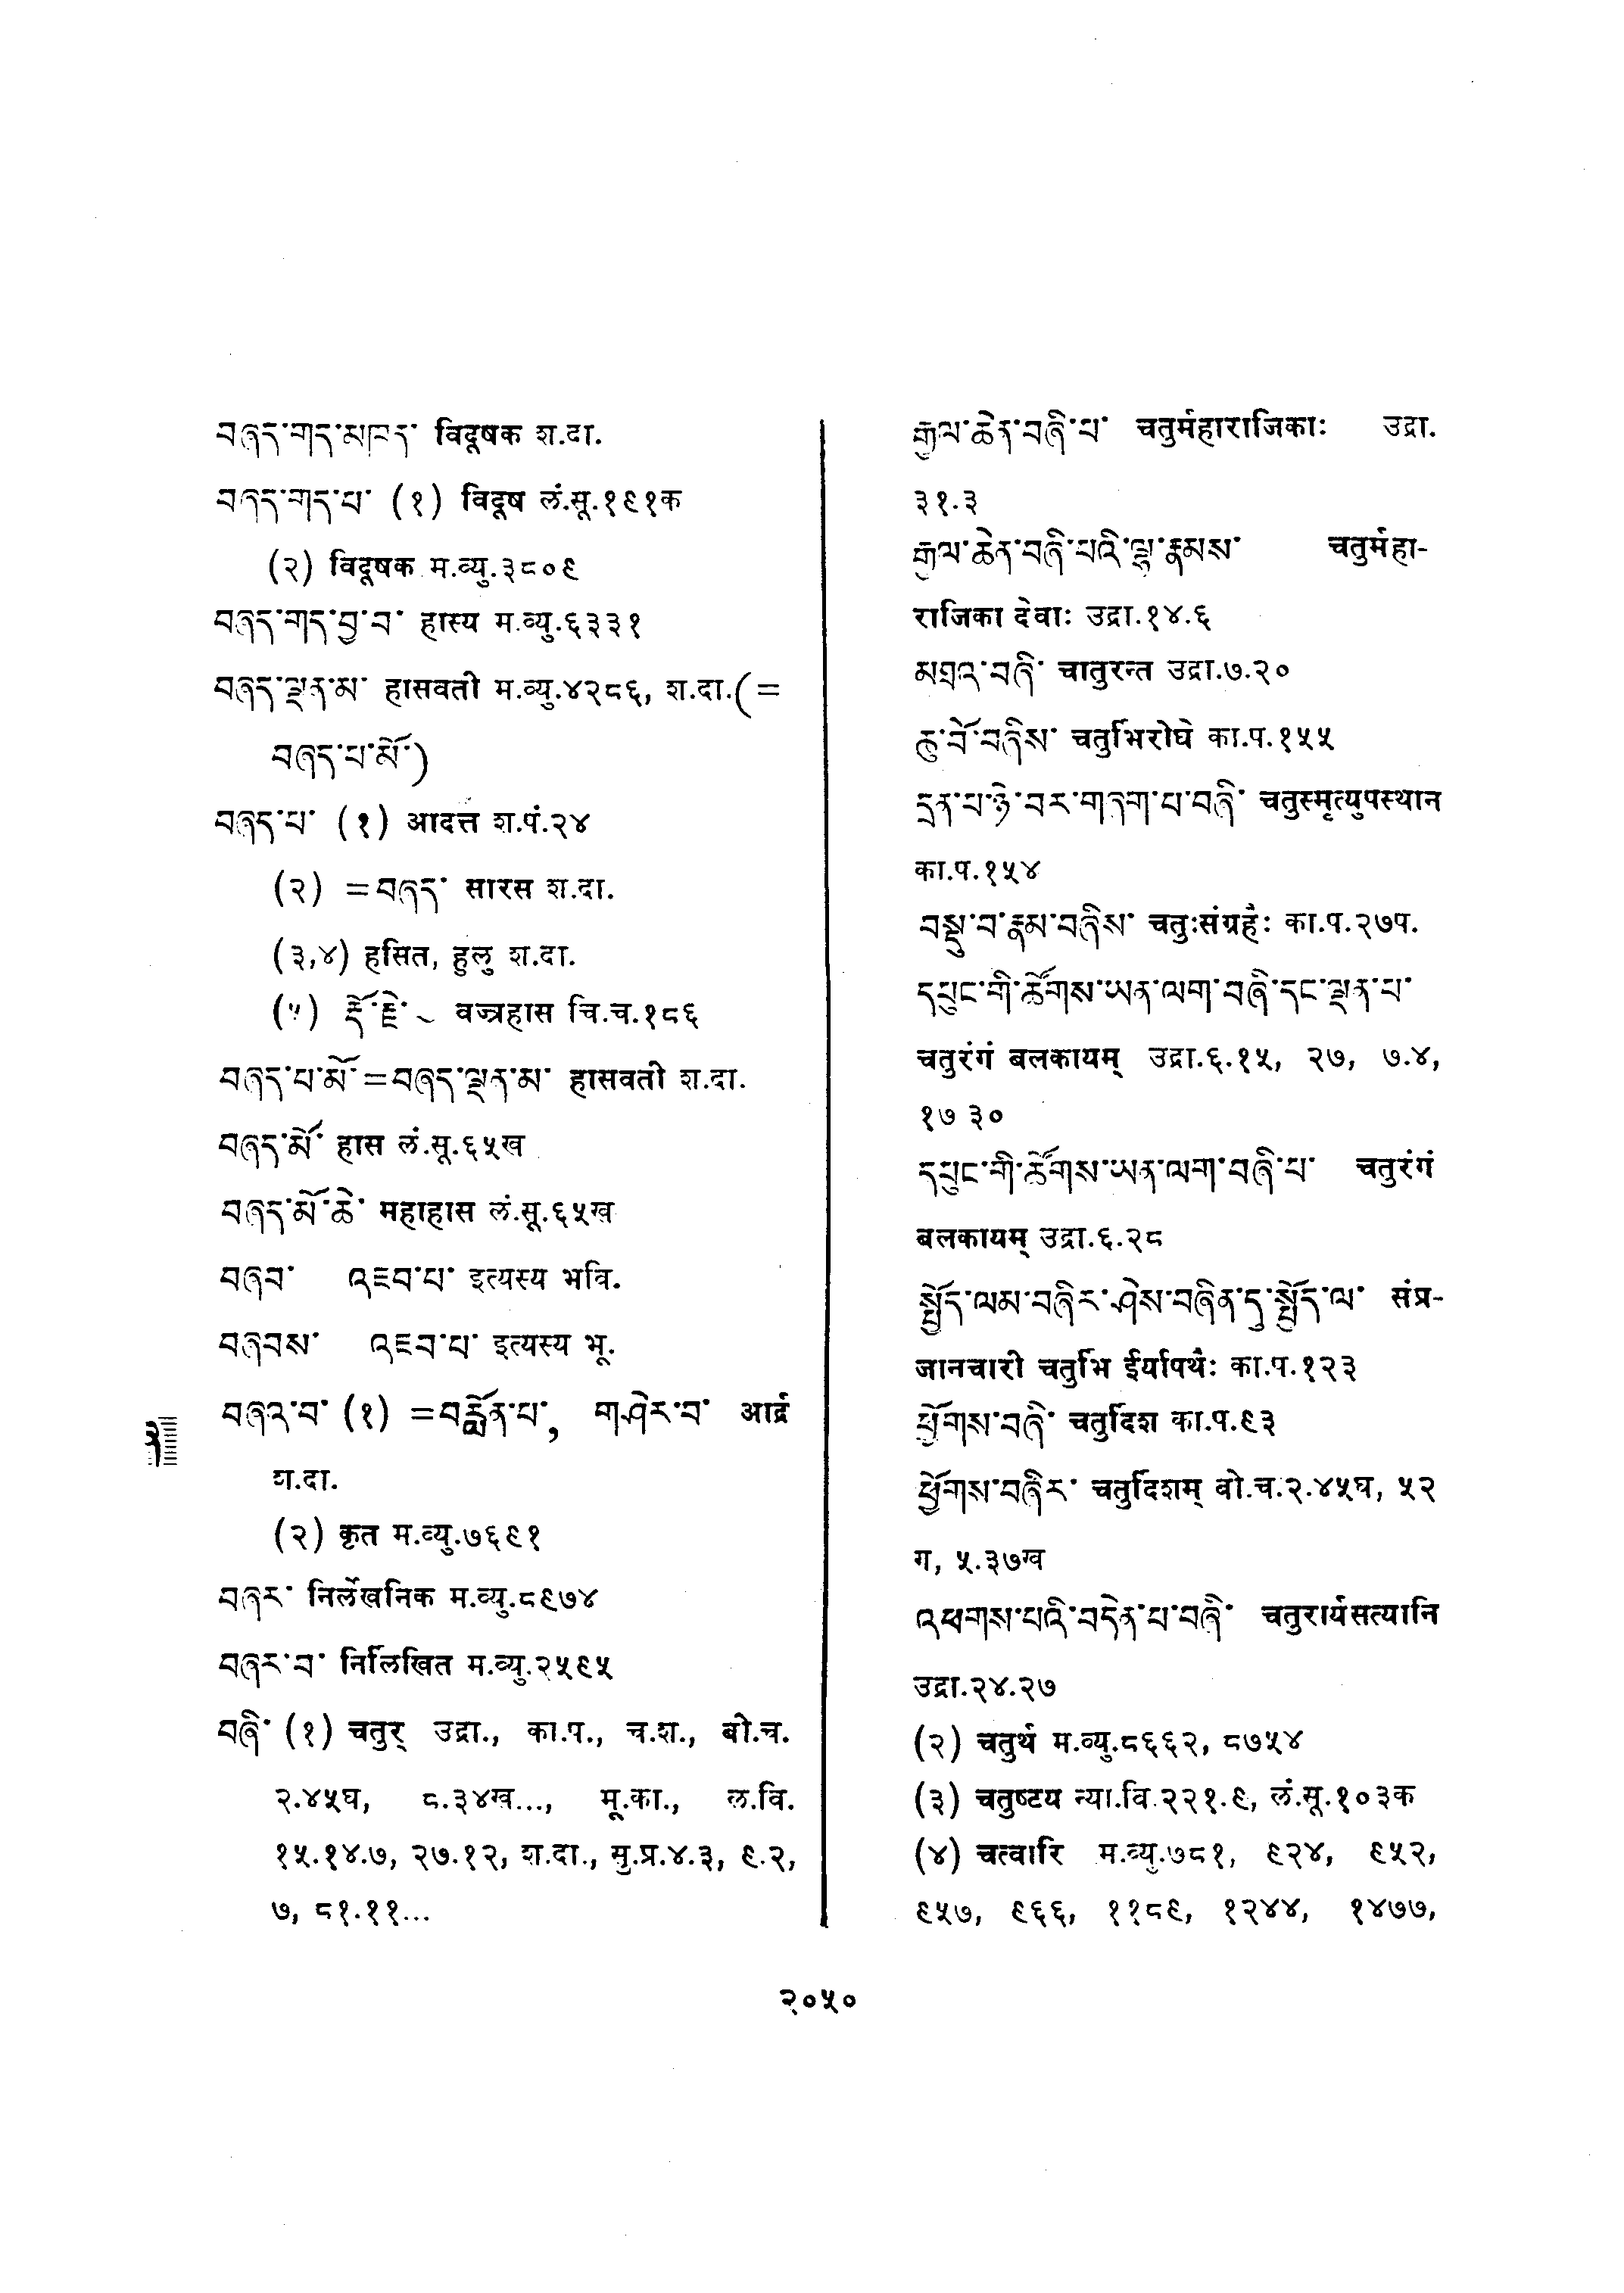 བཞད་གད་མཁན་ विदूषक श.दा.
བཞད་གད་པ་ (१) विदूष लं.सू.१९१क
(२) विदूषक म.व्यु.३८०९
བཞད་གད་བྱ་བ་ हास्य म.व्यु.६३३१
བཞད་ལྡན་མ་ हासवती म.व्यु.४२८६, श.दा.(=
བཞད་པ་མོ་)
བཞད་པ་ (१) आदत्त श.पं.२४
(२) =བཞད་ सारस श.दा.
(३,४) हसित, हुलु श.दा.
(५) རྡོ་རྗེ་ ~ वज्रहास चि.च.१८६
བཞད་པ་མོ་=བཞད་ལྡན་མ་ हासवती श.दा.
བཞད་མོ་ हास लं.सू.६५ख
བཞད་མོ་ཆེ་ महाहास लं.सू.६५ख
བཞབ་ འཇབ་པ་ इत्यस्य भवि.
བཞབས་ འཇབ་པ་ इत्यस्य भू.
བཞའ་བ་ (१) =བརློན་པ་, གཤེར་བ་ आर्द्र
श.दा.
(२) कृत म.व्यु.७६९१
བཞར་ निर्लेखनिक म.व्यु.८९७४
བཞར་བ་ निर्लिखित म.व्यु.२५९५
བཞི་ (१) चतुर् उद्रा., का.प., च.श., बो.च.
२.४५घ, ८.३४ख..., मू.का., ल.वि.
१५.१४.७, २७.१२, श.दा., सु.प्र.४.३, ९.२,
७, ८१.११...
རྒྱལ་ཆེན་བཞི་པ་ चतुर्महाराजिकाः उद्रा.
३१.३
རྒྱལ་ཆེན་བཞི་པའི་ལྷ་རྣམས་ चतुर्महा-
राजिका देवाः उद्रा.१४.६
མཐའ་བཞི་ चातुरन्त उद्रा.७.२०
ཆུ་བོ་བཞིས་ चतुर्भिरोघे का.प.१५५
དྲན་པ་ཉེ་བར་གཞག་པ་བཞི་ चतुस्मृत्युपस्थान
का.प.१५४
བསྡུ་བ་རྣམ་བཞིས་ चतुःसंग्रहैः का.प.२७प.
དཔུང་གི་ཚོགས་ཡན་ལག་བཞི་དང་ལྡན་པ་
चतुरंगं बलकायम् उद्रा.६.१५, २७, ७.४,
१७ ३०
དཔུང་གི་ཚོགས་ཡན་ལག་བཞི་པ་ चतुरंगं
बलकायम् उद्रा.६.२८
སྤྱོད་ལམ་བཞིར་ཤེས་བཞིན་དུ་སྤྱོད་ལ་ संप्र-
जानचारी चतुर्भि ईर्यापथैः का.प.१२३
ཕྱོགས་བཞི་ चतुर्दिश का.प.९३
ཕྱོགས་བཞིར་ चतुर्दिशम् बो.च.२.४५घ, ५२
ग, ५.३७ख
འཕགས་པའི་བདེན་པ་བཞི་ चतुरार्यसत्यानि
उद्रा.२४.२७
(२) चतुर्थ म.व्यु.८६६२, ८७५४
(३) चतुष्टय न्या.वि.२२१.९, लं.सू.१०३क
(४) चत्वारि म.व्यु.७८१, ९२४, ९५२,
९५७, ९६६, ११८९, १२४४, १४७७,
२०५०